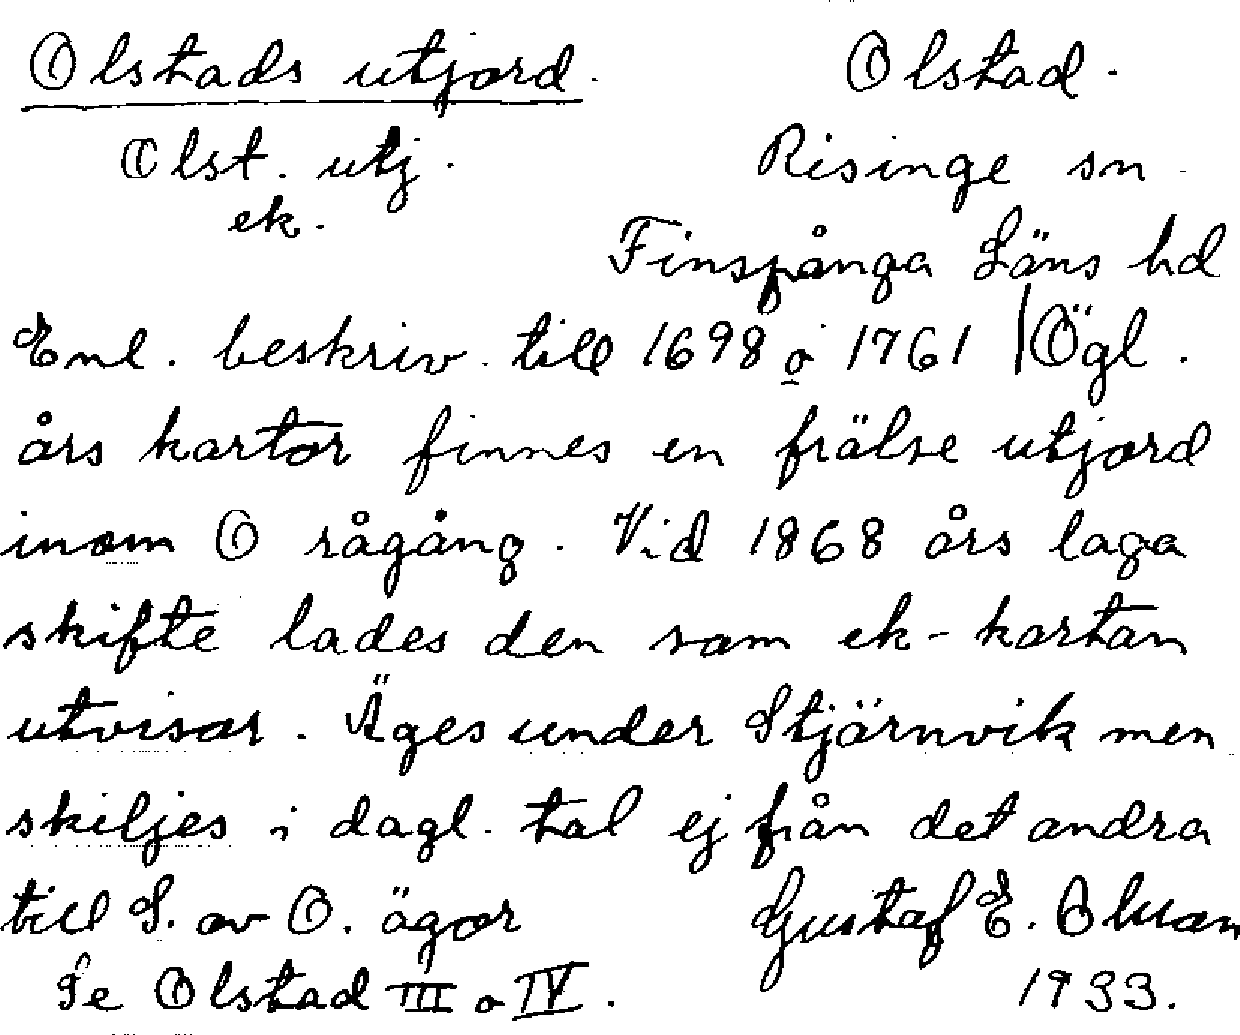 Olstads utjord. Olstad.
Olst. utj. Risinge sn
ek.
Finspånga Läns hd
Enl. beskriv. till 1698 o 1761 | Ögl.
års kartor finnes en frälse utjord
inom O rågång. Vid 1868 års laga
skifte lades den som ek-kartan
utvisar. Äges under Stjärnvik men
skiljes i dagl. tal ej från det andra
till S. av O. ägor Gustaf E. Olsson
Se Olstad III o IV. 1933.